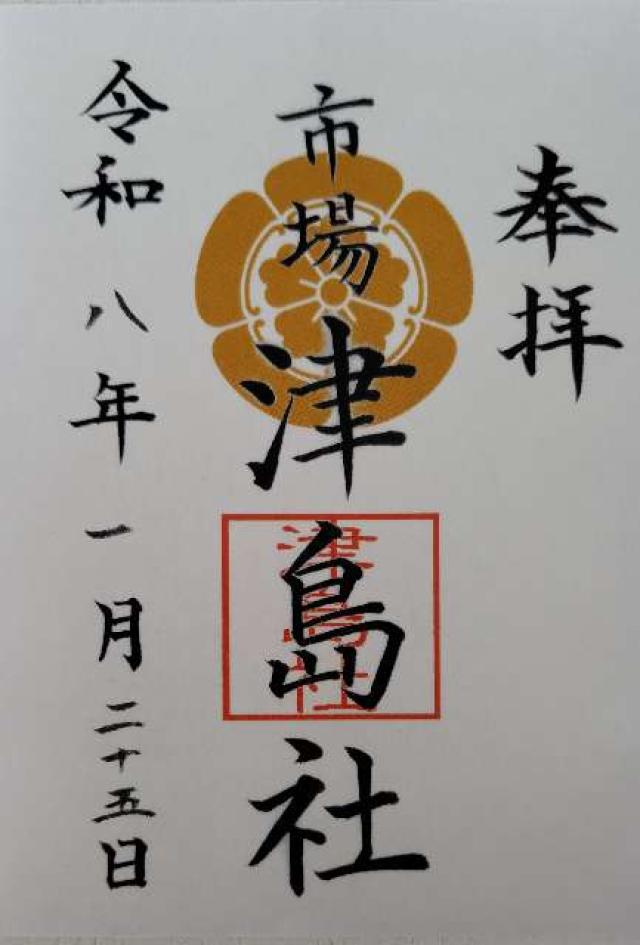 奉拝
市場津島社
津島社
令和八年一月二十五日